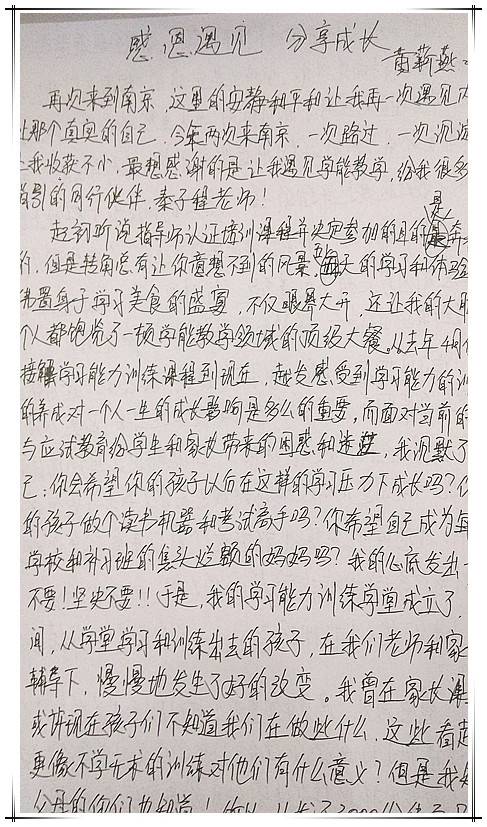 感恩遇见 分享成长
黄靳燕
再次来到南京，这里的安静和平和让我再一次遇见内
让那个真实的自己，今年两次来南京，一次路过，一次沉淀
让我收获不小，最想感谢的是让我遇见学能教学，给我很多
指引的同行伙伴，秦子程老师！
起初听说指导师认证培训课程并决定参加的目的是奔
的，但是转角总有让你意想不到的风景，每天的学习和体验
佛置身于学习美食的盛宴，不仅眼界大开，还让我的大脑
个人都饱览了一顿学能教学领域的顶级大餐。从去年4月
接触学习能力训练课程到现在，越发感受到学习能力的训
的养成对一个人一生的成长影响是多么的重要，而面对当前的
与应试教育给学生和家长带来的困惑和迷茫，我沉默了
己：你会希望你的孩子以后在这样的学习压力下成长吗？
的孩子做个读书机器和考试高手吗？你希望自己成为每
学校和补习班的焦头烂额的妈妈吗？我的心底发出一
不要！坚决不要！！于是，我的学习能力训练学堂成立了
间，从学堂学习和训练出去的孩子，在我们老师和家
辅导下，慢慢地发生了好的改变。我曾在家长课
或许现在孩子们不知道我们在做些什么，这些看起
更像不学无术的训练对他们有什么意义？但是我知
父母的你们也知道！